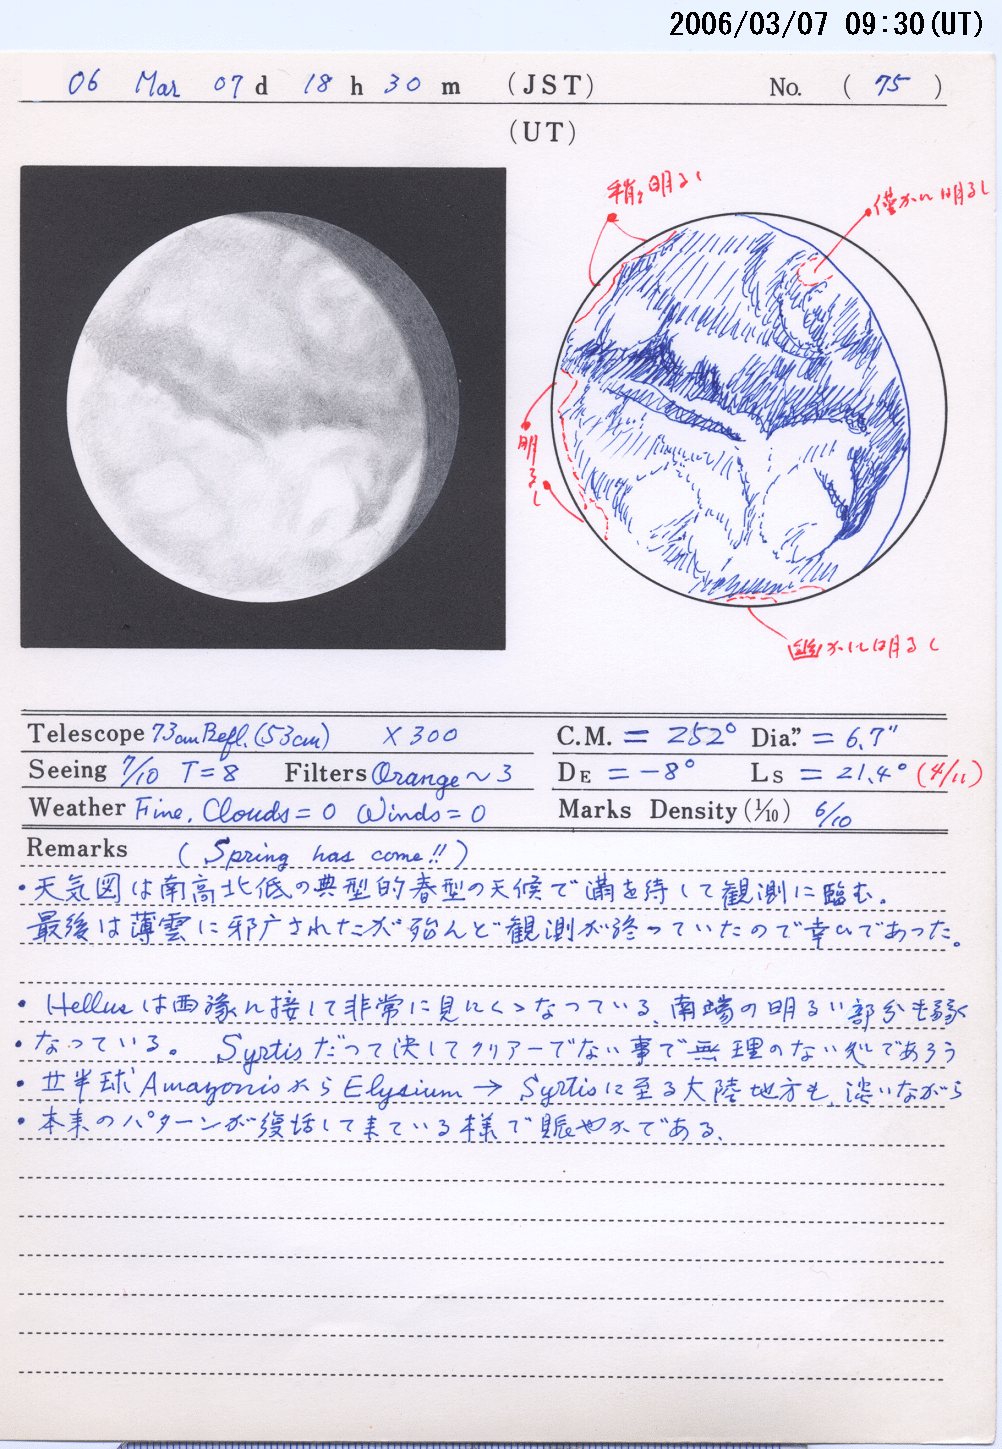 2006/03/07 09:30(UT)
06 Mar 07 d 18 h 30 m (JST) No. ( 75 )
(UT)
稍々明るし
僅かに明るし
明るし
僅かに明るし
Telescope 73cm Refl. (53cm) × 300
C.M. = 252° Dia." = 6.7"
Seeing 7/10 T=8 Filters Orange~3
DE = -8° Ls = 21.4° (4/11)
Weather Fine. Clouds=0 Winds=0
Marks Density (1/10) 6/10
Remarks (Spring has come!!)
・天気図は南高北低の典型的春型の天候で満を持して観測に臨む。
最後は薄雲に邪广されたが殆んど観測が終っていたので幸いであった。
・Hellusは西縁に接して非常に見にくゝなっている、南端の明るい部分も弱く
・なっている。 Syrtisだって決してクリアーでない事で無理のない処であろう
・北半球AmazonisからElysium→Syrtisに至る大陸地方も、淡いながら
・本来のパターンが復活して来ている様で賑やかである、